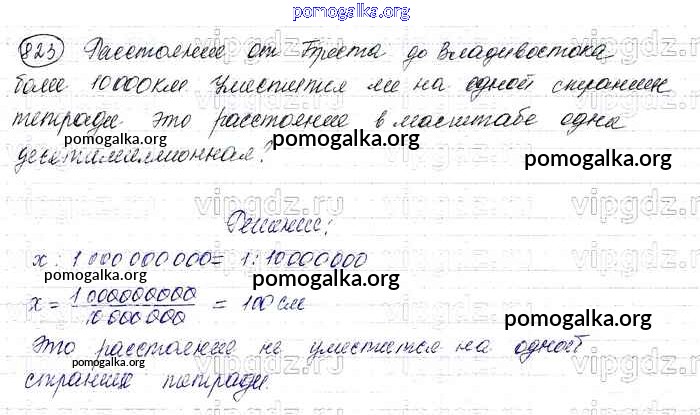 pomogalka.org
823 Расстояние от Бреста до Владивостока
более 10000км Уместится ли на одной странице
тетради это расстояние в масштабе одна
pomogalka.org
десятимиллионная?
pomogalka.org
pomogalka.org
vipgdz.ru
Решение:
x : 1 000 000 000 = 1 : 10000000
pomogalka.org
pomogalka.org
x = 1 000000000 / 10 000 000 = 100 см
pomogalka.org
Это расстояние не уместится на одной
странице тетради.
pomogalka.org